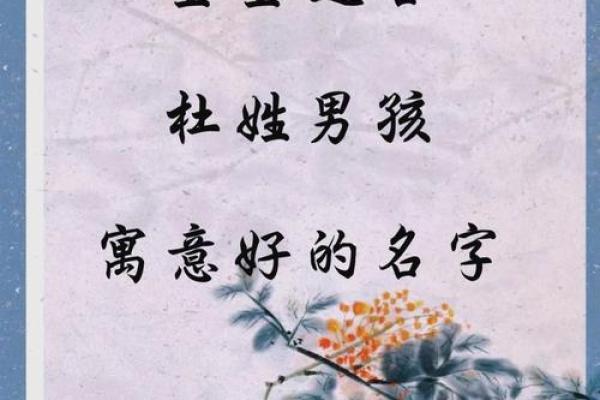 杜姓男孩
寓意好的名字